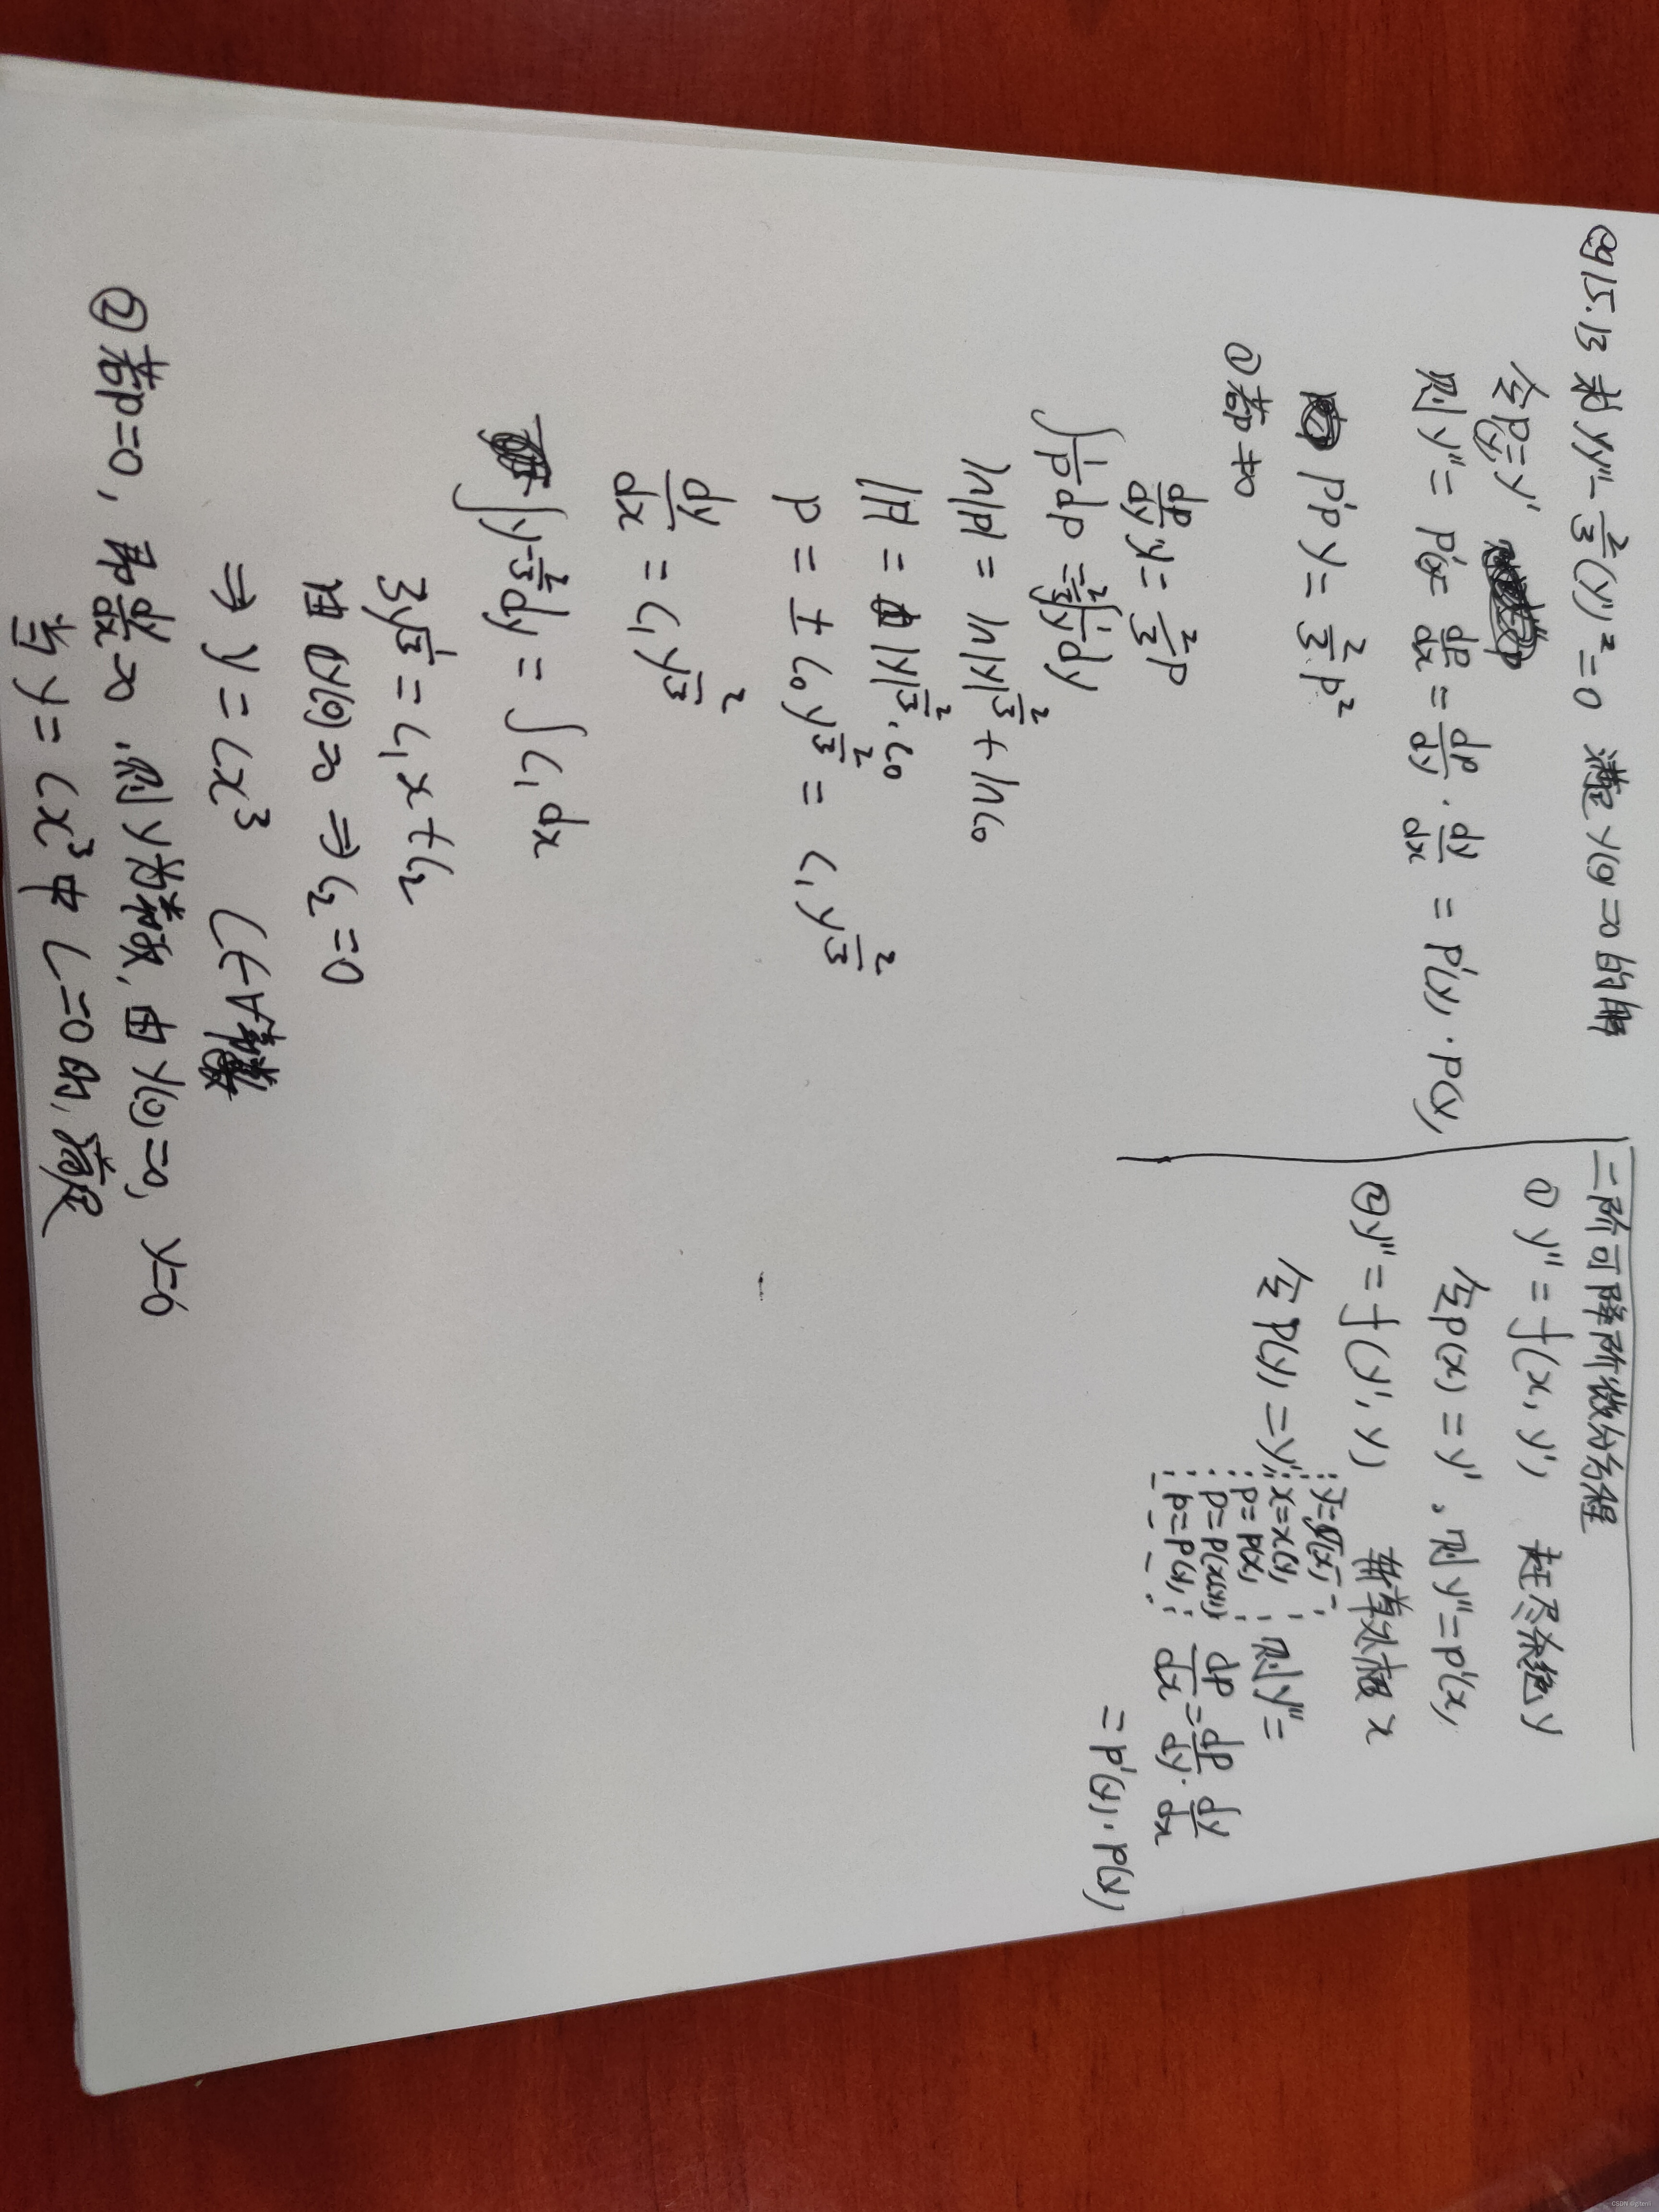 例15.13 求 yy''-2/3(y')²=0 满足 y(0)=0 的解
令p(y)=y'
则 y''=p'(x)=dp/dx=dp/dy·dy/dx=p'(y)·p(y)
p'py=2/3p²
①若p≠0
dp/dy y=2/3p
∫1/p dp=2/3∫1/y dy
ln|p|=ln|y|^(2/3)+lnC₀
|p|=|y|^(2/3)·C₀
p=±C₀y^(2/3)=C₁y^(2/3)
dy/dx=C₁y^(2/3)
∫y^(-2/3)dy=∫C₁dx
3y^(1/3)=C₁x+C₂
由 y(0)=0⇒C₂=0
⇒y=Cx³ (C为常数)
②若p=0，即dy/dx=0．则y为常数，由y(0)=0，y=0
当y=Cx³中C=0时，满足
二阶可降阶微分方程
① y''=f(x,y') 赶尽杀绝y
令p(x)=y'。则y''=p'(x)
②y''=f(y',y) 斩草除根x
令p(y)=y'
y=y(x)
x=x(y)
p=p(x)
p=p(x(y))
p=p(y)
则y''=
dp/dx=dp/dy·dy/dx
=p'(y)·p(y)
CSDN @gltenli